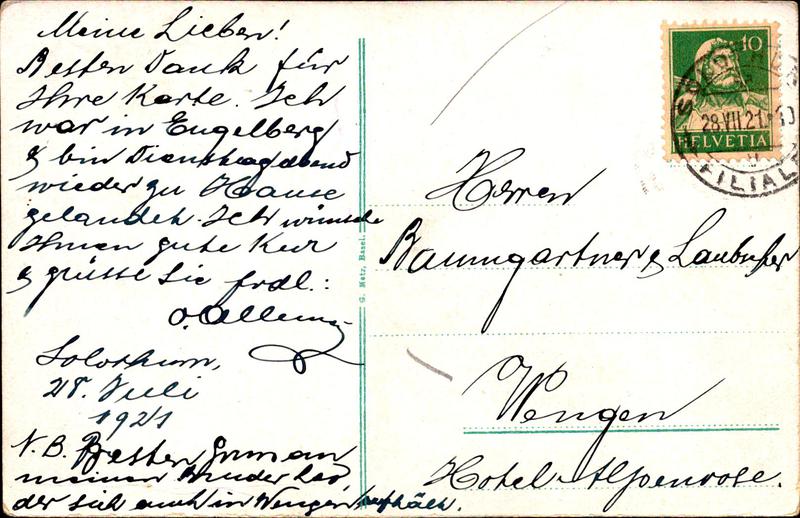 Meine Lieben!
Besten Dank für
Ihre Karte. Ich
war in Engelberg
& bin Dienstag abend
wieder zu Hause
gelandet. Ich wünsche
Ihnen gute Kur
& grüsse Sie frdl.:
Solothurn,
28. Juli
1921
N.B. Besten Gruss an
meinen Bruder Leo,
der sich auch in Wengen aufhält.
G. Metz, Basel.
10
28.VII.21
HELVETIA
FILIALE
Herren
Baumgartner &
Wengen
Hotel Alpenrose.